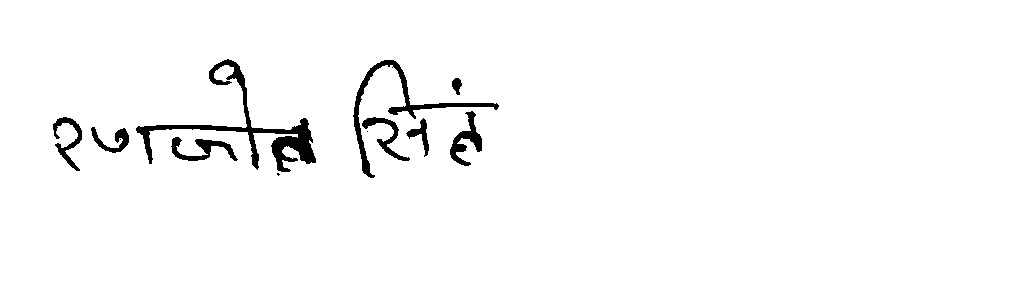 रणजोत सिंह